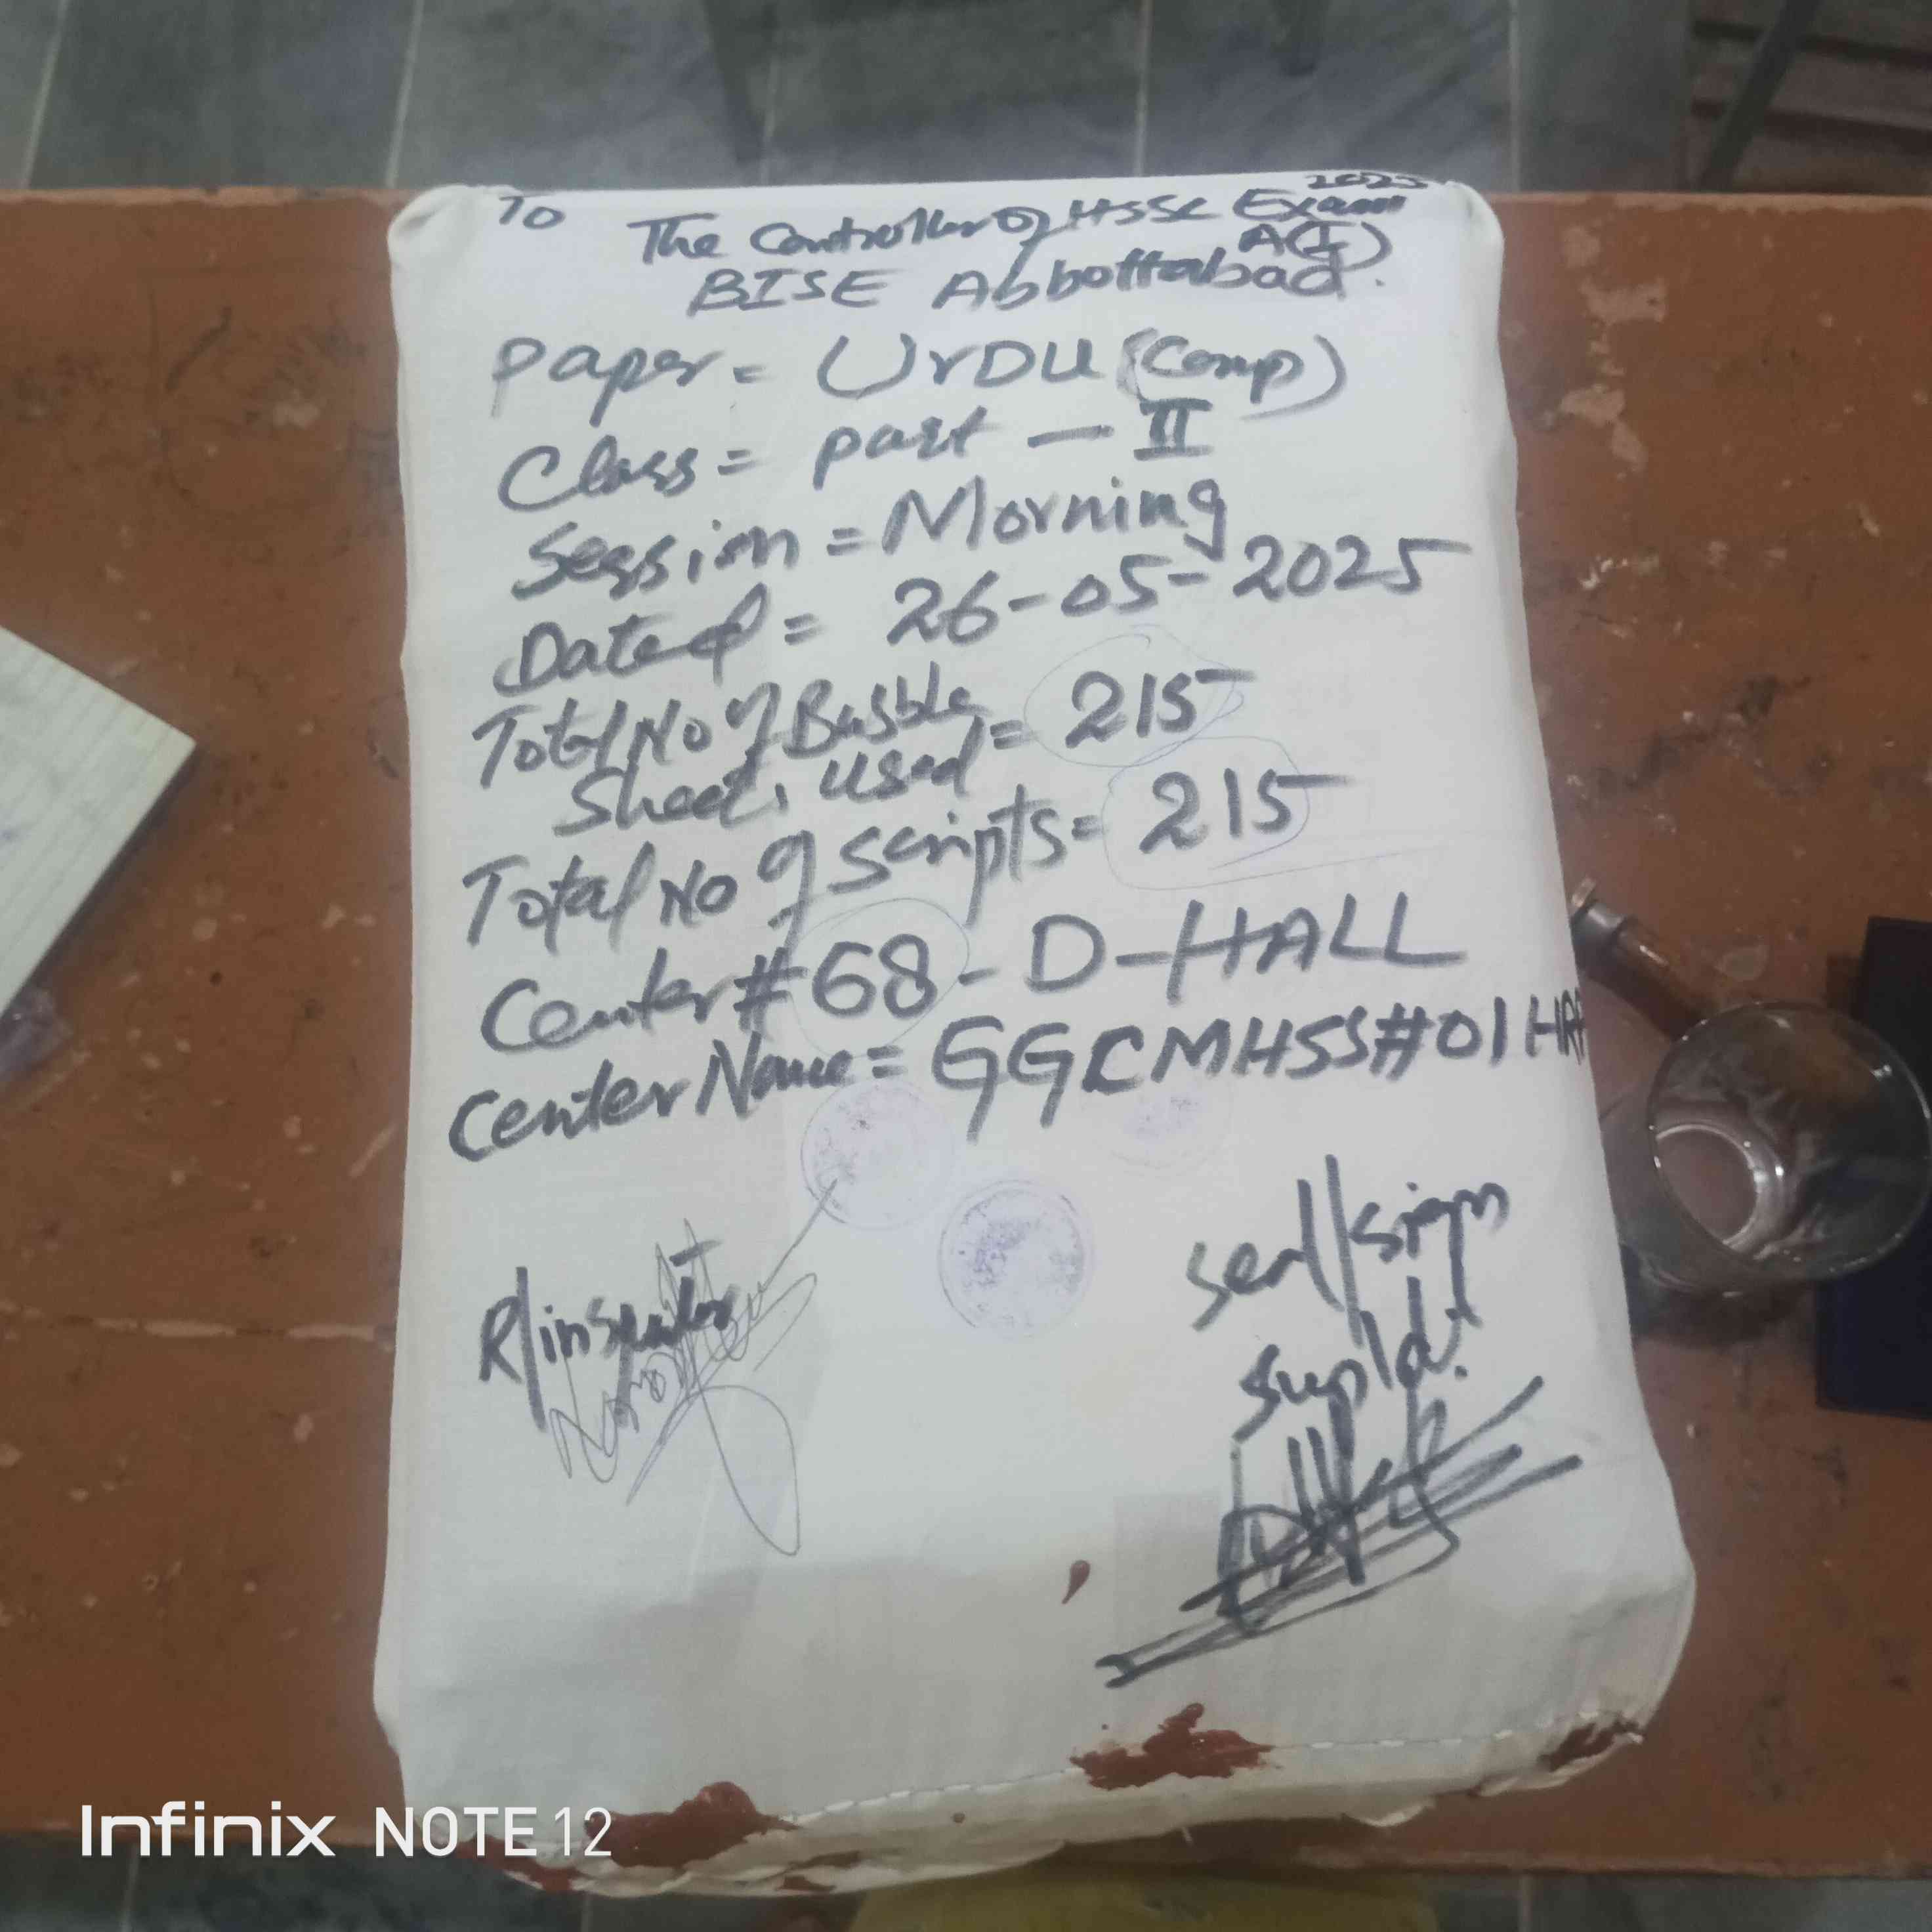 To
The Controller of HSSC Exam 2025
A(I)
BISE Abbottabad.
Paper = UrDU (Comp)
Class = part - II
Session = Morning
Dated = 26-05-2025
Total No of Bubble
Sheets Used = 215
Total No of Scripts = 215
Center # 68 - D-HALL
Center Name = GGCMHSS#01 HR
R/inspector
Seal/sign
Supdt:
Infinix NOTE 12